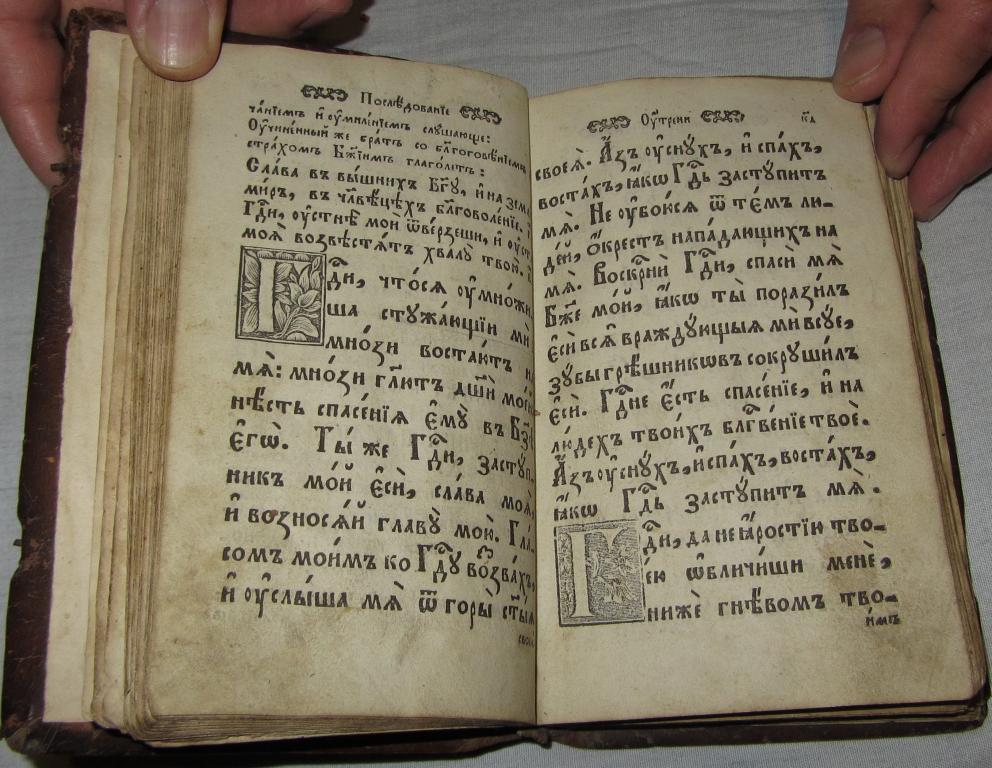 Послѣдованїе
ча́нїемъ и҆ ѹ҆миле́нїемъ слꙋ́шающе:
Оу҆чине́нный же бра́тъ со бл҃гоговѣ́нїемъ
стра́хомъ Бж҃їимъ глаго́летъ:
Сла́ва въ вы́шнихъ Бг҃ꙋ, и҆ на зем
ми́ръ, въ чл҃вѣ́цѣхъ бл҃говоле́нїе.
Гдⷭ҇и, ѹ҆стнѣ̀ мои̑ ѿве́рзеши, и҆ ѹ҆ст
моѧ̑ возвѣстѧ́тъ хвалꙋ̀ твою̀.
Гдⷭ҇и, что́сѧ ѹ҆мно́жи
ша стꙋжа́ющїи мѝ
мно́зи востаю́тъ н
мѧ̀: мно́зи гл҃ютъ дш҃и мое́й
нѣ́сть спасе́нїѧ є҆мꙋ̀ въ Бз҃ѣ
є҆гѡ̀. Ты́ же Гдⷭ҇и, застꙋ́п
никъ мо́й є҆сѝ, сла́ва моѧ̀,
и҆ возносѧ́й главꙋ̀ мою̀. Гла́-
сомъ мои́мъ ко Гдⷭ҇ꙋ воззва́хъ,
и҆ ѹ҆слы́ша мѧ̀ ѿ горы̀ ст҃ы́ѧ
своеѧ̀
Оу҆́трени к҃д
своеѧ̀. А҆́зъ ѹ҆снꙋ́хъ, и҆ спа́хъ,
воста́хъ, ꙗ҆́кѡ Гдⷭ҇ь застꙋ́питъ
мѧ̀. Не ѹ҆бою́сѧ ѿ те́мъ лю-
де́й, ѻ҆́крестъ напа́дающихъ на
мѧ̀. Воскрⷭ҇нѝ Гдⷭ҇и, спасѝ мѧ̀
Бж҃е мо́й, ꙗ҆́кѡ ты̀ порази́лъ
є҆сѝ всѧ̑ враждꙋ́ющыѧ мѝ всꙋ́е,
зꙋ́бы грѣ́шникѡвъ сокрꙋши́лъ
є҆сѝ. Гдⷭ҇не є҆́сть спасе́нїе, и҆ на
лю́дехъ твои́хъ блⷭ҇ве́нїе твоѐ.
А҆́зъ ѹ҆снꙋ́хъ, и҆ спа́хъ, воста́хъ,
ꙗ҆́кѡ Гдⷭ҇ь застꙋ́питъ мѧ̀.
Гдⷭ҇и, да не ꙗ҆́ростїю тво-
е́ю ѡ҆бличи́ши менѐ,
нижѐ гнѣ́вомъ тво-
имъ